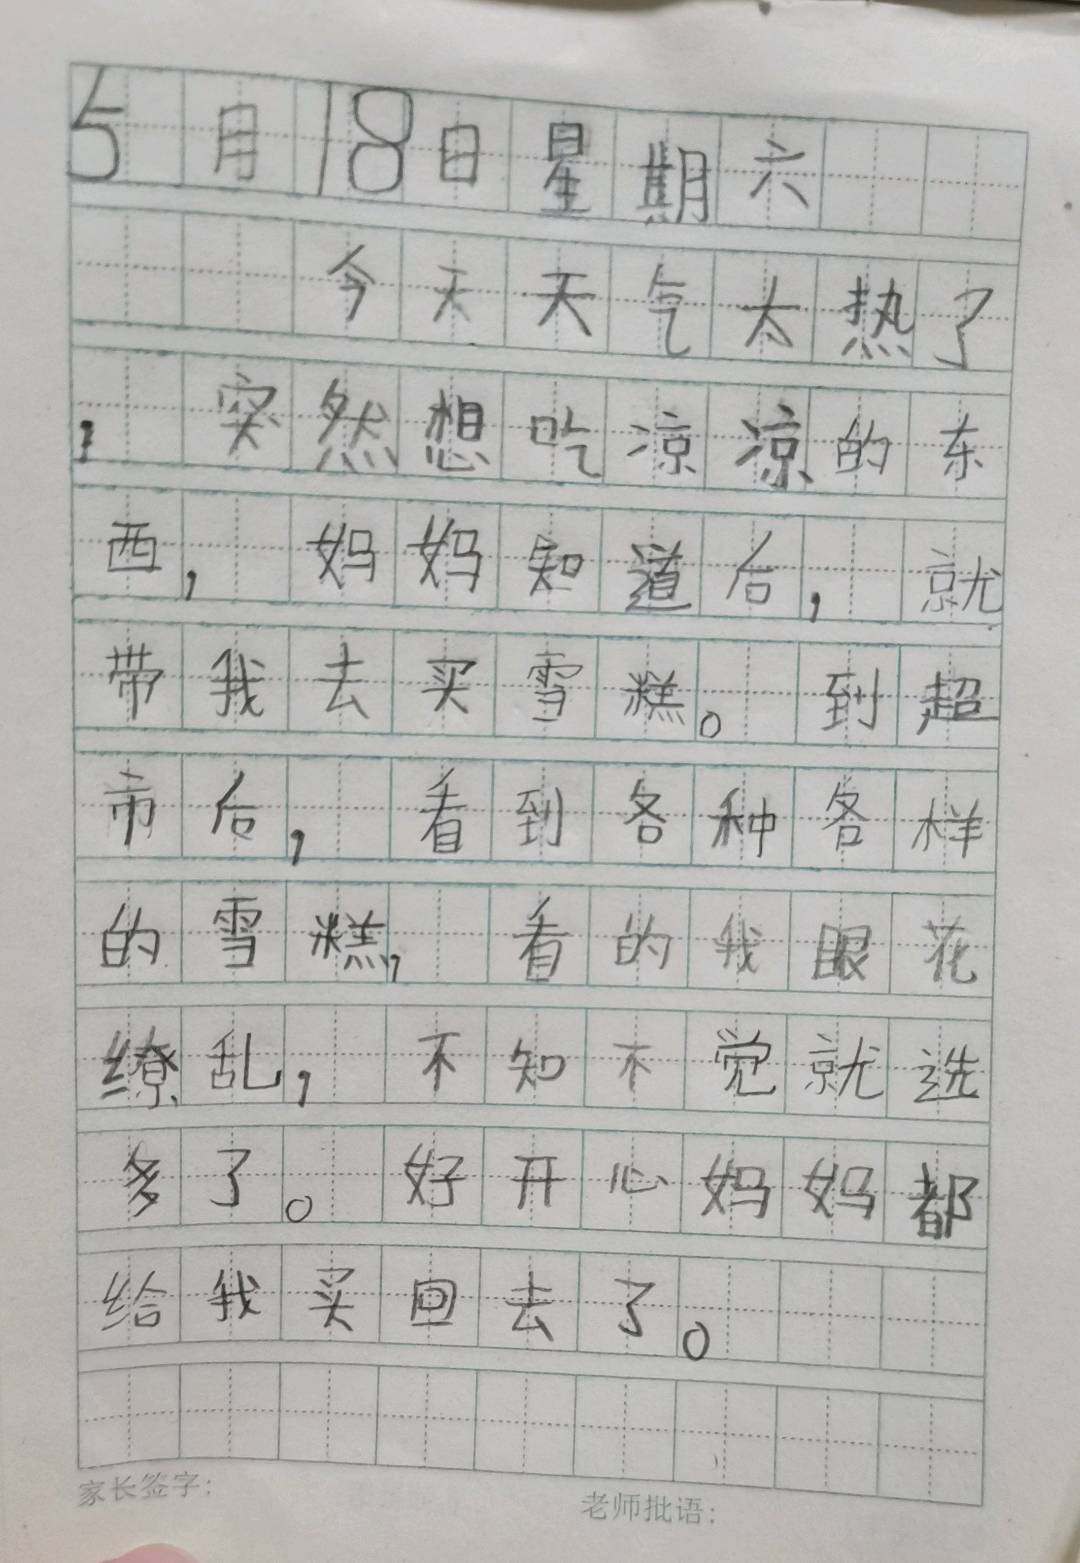 5月18日星期六
今天天气太热了
，突然想吃凉凉的东
西，妈妈知道后，就
带我去买雪糕。到超
市后，看到各种各样
的雪糕，看的我眼花
缭乱，不知不觉就选
多了。好开心妈妈都
给我买回去了。
家长签字：
老师批语：